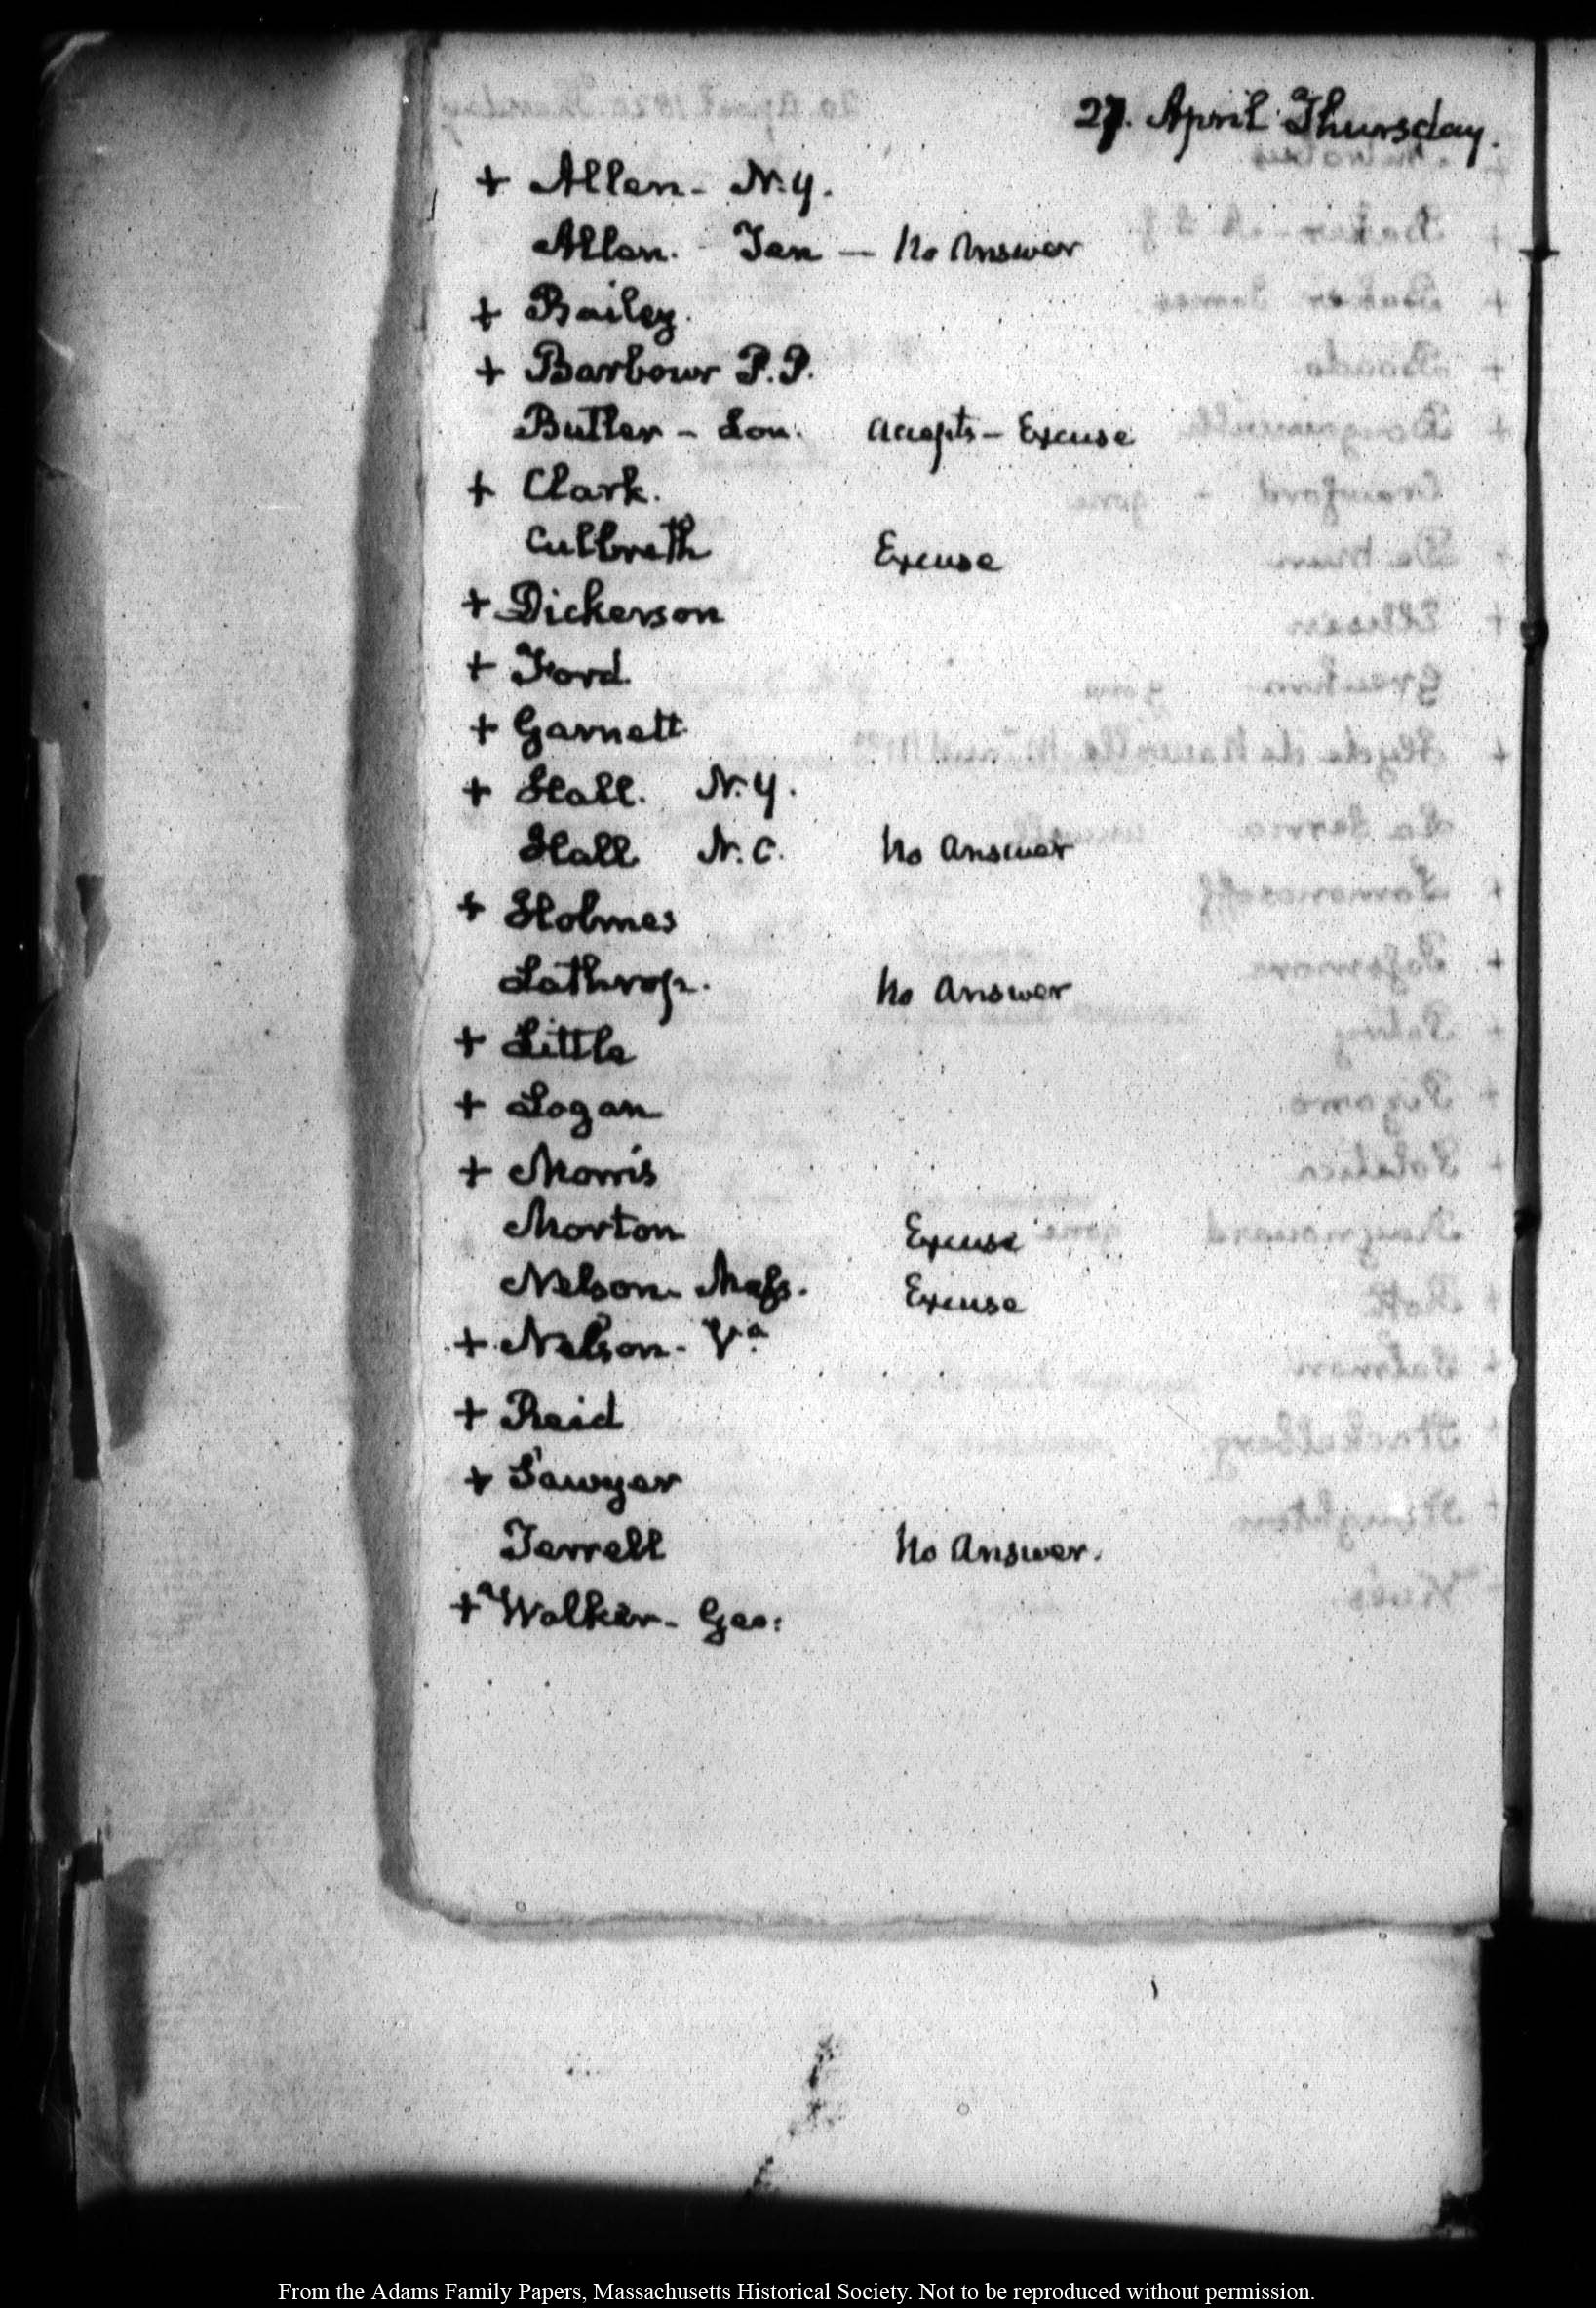 27. April Thursday.
+ Allen - N.Y.
Allen. Ten — No Answer
+ Bailey.
+ Barbour P.P.
Butler - Lou. Accepts - Excuse
+ Clark.
Culbreth Excuse
+ Dickerson
+ Ford.
+ Garnett
+ Hall. N.Y.
Hall N.C. No Answer
+ Holmes
Lathrop. No Answer
+ Little
+ Logan
+ Morris
Morton Excuse
Nelson - Mass. Excuse
+ Nelson - Va
+ Reid
+ Sawyer
Terrell No Answer.
+ Walker - Geo:
From the Adams Family Papers, Massachusetts Historical Society. Not to be reproduced without permission.